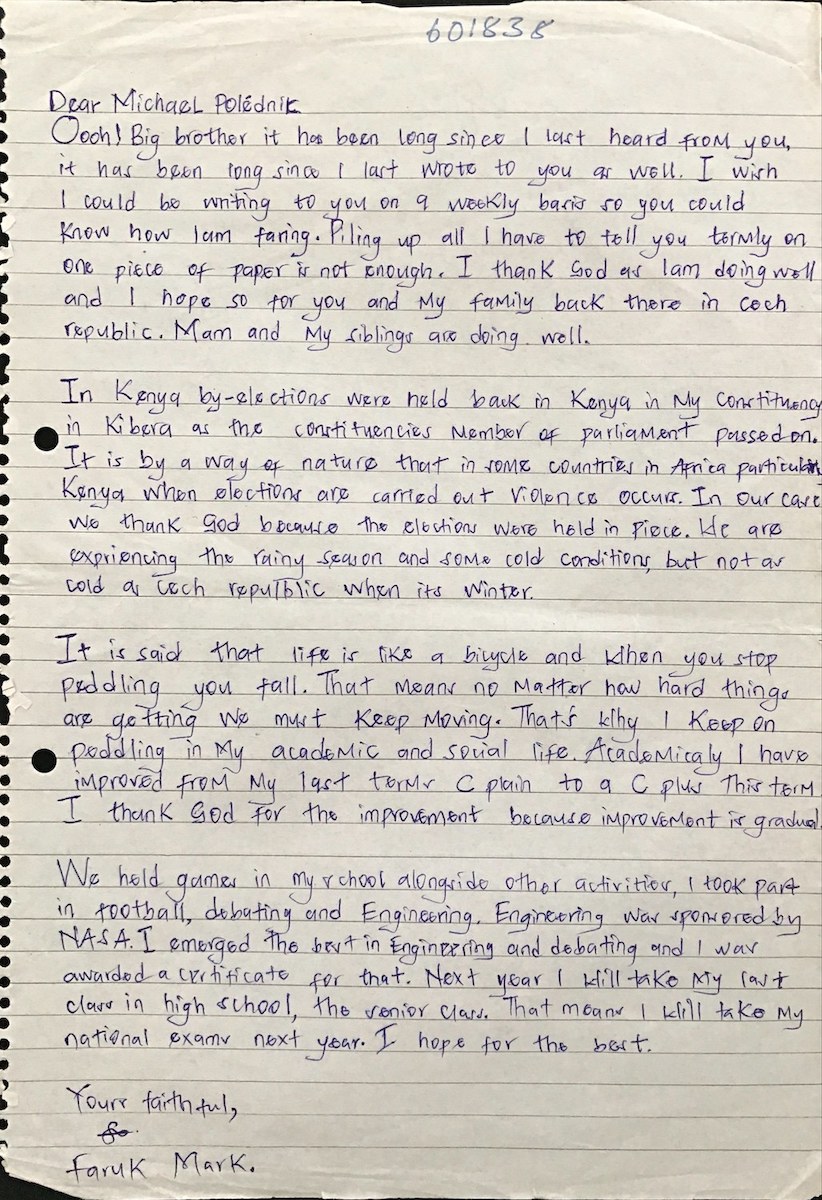 601838
Dear Michael Polédnik
Oooh! Big brother it has been long since I last heard from you,
it has been long since I last wrote to you as well. I wish
I could be writing to you on a weekly basis so you could
know how Iam faring. Piling up all I have to tell you termly on
one piece of paper is not enough. I thank God as Iam doing well
and I hope so for you and My family back there in cech
republic. Mam and My siblings are doing well.
In Kenya by-elections were held back in Kenya in My Constituency
in Kibera as the constituencies Member of parliament passed on.
It is by a way of nature that in some countries in Africa particularly
Kenya when elections are carried out violence occurs. In our case
We thank God because the elections were held in piece. We are
expriencing the rainy season and some cold conditions, but not as
cold as Cech republic when its winter.
It is said that life is like a bicycle and When you stop
peddling you fall. That means no Matter how hard things
are getting We must Keep Moving. That's Why I Keep on
peddling in My academic and social life. Academicaly I have
improved from My last terms C plain to a C plus This term
I thank God for the improvement because improvement is gradual.
We held games in my school alongside other activities, I took part
in football, debating and Engineering. Engineering was sponsored by
NASA. I emerged the best in Engineering and debating and I was
awarded a certificate for that. Next year I Will take My last
class in high school, the senior class. That means I Will take My
national exams next year. I hope for the best.
Yours faithful,
Faruk Mark.